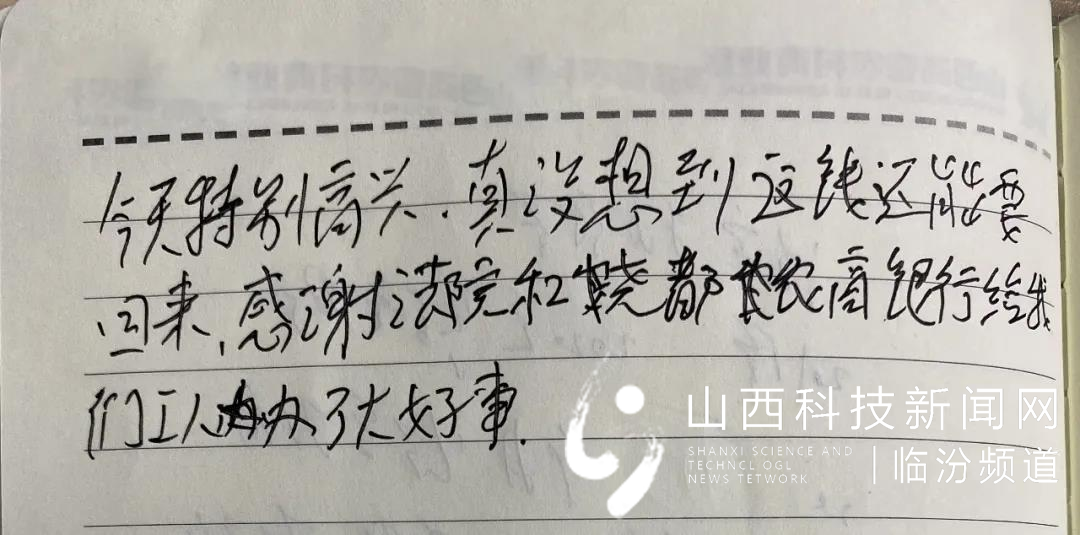 今天特别高兴.真没想到这钱还能要
回来,感谢法院和尧都农商银行给我
们工人办了大好事.
山西科技新闻网
SHANXI SCIENCE AND
TECHNCL OGL
NEWS TETWORK
临汾频道